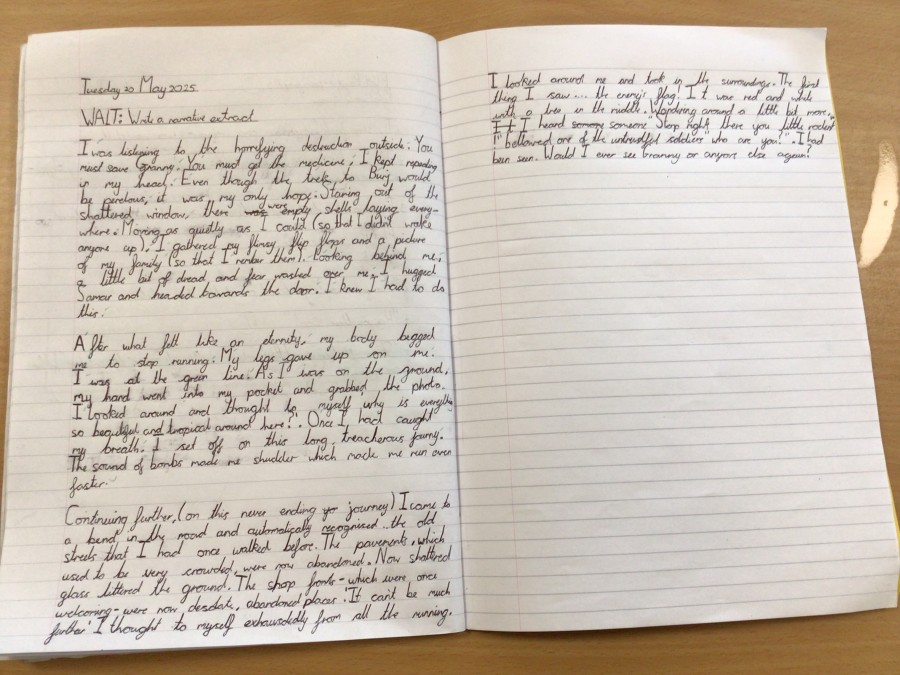 Tuesday 20 May 2025
WALT: Write a narrative extract
I was listening to the horrifying destruction outside. You
must save Granny. You must get the medicine. I kept repeating
in my head. Even though the trek to Burj would
be perelous, it was my only hope. Staring out of the
shattered window, there were empty shells laying every-
where. Moving as quietly as I could (so that I didn't wake
anyone up), I gathered my flimsy flip flops and a picture
of my family (so that I rember them). Looking behind me,
a little bit of dread and fear washed over me. I hugged
Samar and headed towards the door. I knew I had to do
this.
After what felt like an eternity, my body begged
me to stop running. My legs gave up on me.
I was at the green line. As I was on the ground,
my hand went into my pocket and grabbed the photo.
I looked around and thought to myself why is everything
so beautiful and tropical around here?'. Once I had caught
my breath. I set off on this long, treacherous journy.
The sound of bombs made me shudder which made me run even
faster.
Continuing further, (on this never ending journey) I came to
a bend in the road and automatically recognised the old
streets that I had once walked before. The pavements, which
used to be very crowded, were now abandoned. Now shattered
glass littered the ground. The shop fronts - which were once
welcoming - were now desolate, abandoned places. 'It can't be much
further' I thought to myself exhausdedly from all the running.
I looked around me and took in the surroundings. The first
thing I saw... the enemy's flag! It was red and white
with a tree in the middle. Wandering around a little bit more,
I heard someone "Stop right there you little rodent
!" bellowed one of the untrustful soldiers "who are you!". I had
been seen. Would I ever see Granny or anyone else again?